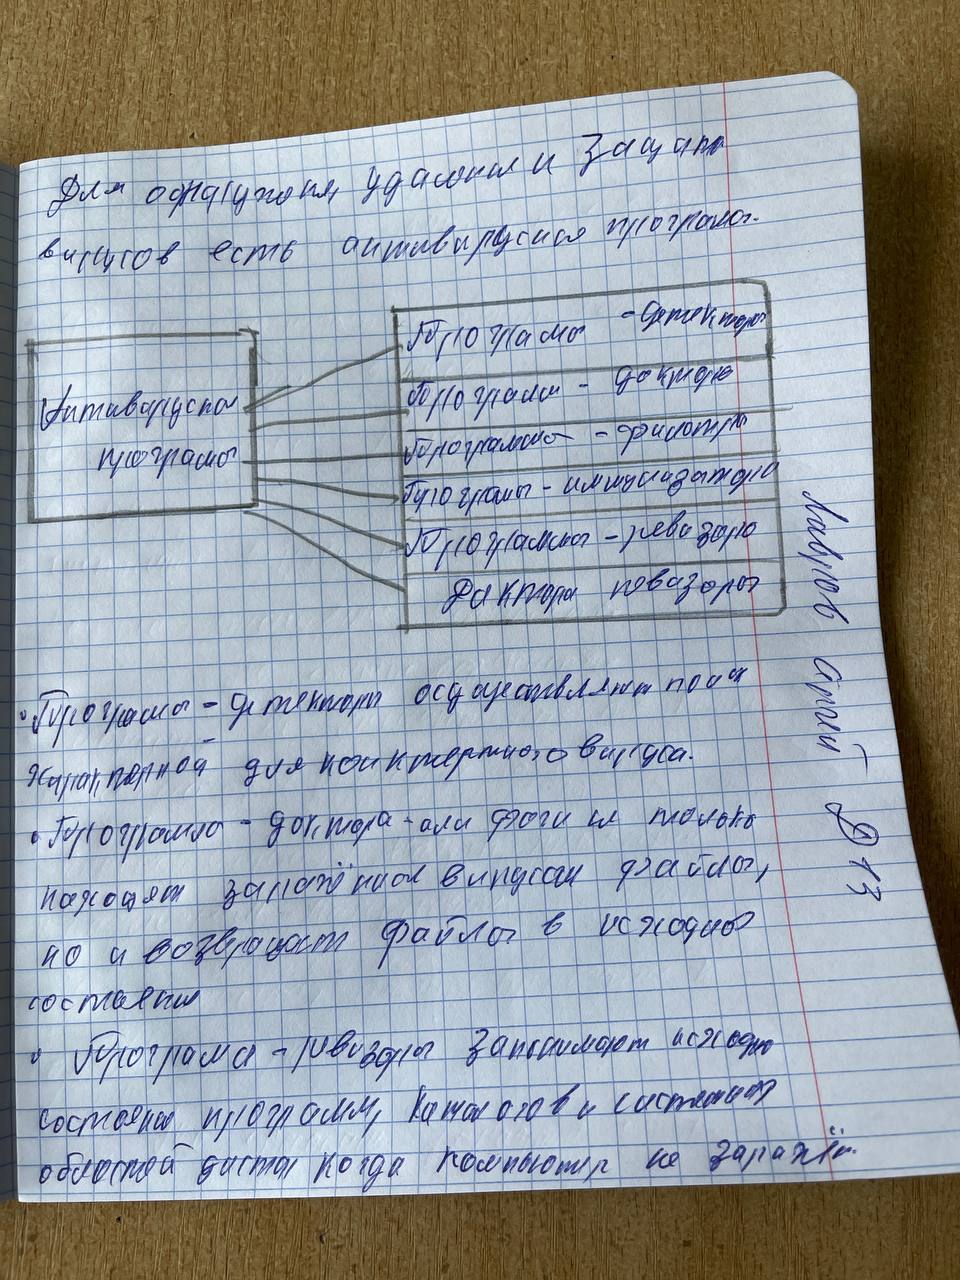 Для обнаружения, удалении и защиты
вирусов есть антивирусися програмы.
Антивирусны
програмы
Програмы - детекторы
Програмы - доктора
Програмы - филотры
Програмы - иммунизатора
Програмы - ревизоры
Доктора ревизоры
• Програмы - детекторы осуществляют поиск
характерной для конктертного вируса.
• Програмы - доктора - или фаги не только
находят заражённы вирусам файлы,
но и возвращают файлы в исходное
состояни
• Програма - ревизоры запоминают исходно
состояни программ, каталогов и системных
областей диста когда компьютер не заражён.
Лавров
Д13